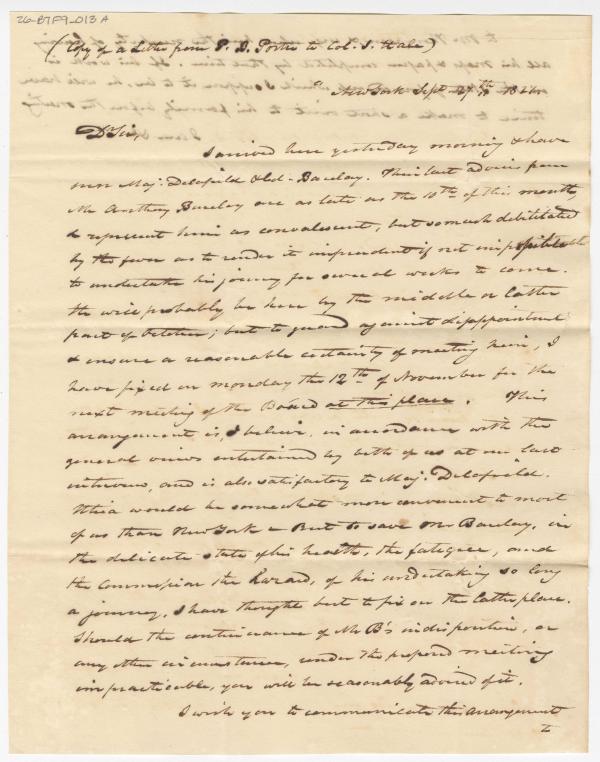 26-B7F9_013A
(Copy of a Letter from P. B. Porter to Col. S. Hale)
New York Sept. 27th 1821.
Dr Sir,
I arrived here yesterday morning & have
seen Maj. Delafield & Col. Barclay. Their last advices from
Mr Anthony Barclay are as late as the 10th of this month,
& represent him as convalescent, but so much debilitated
by the fever as to render it imprudent if not impossible
to undertake his journey for several weeks to come.
He will probably be here by the middle or latter
part of October; but to guard against disappointment
& ensure a reasonable certainty of meeting him, I
have fixed on monday the 12th of November for the
next meeting of the Board at this place. This
arrangement is, I believe, in accordance with the
general views entertained by both of us at our last
interview, and is also satisfactory to Maj. Delafield.
Utica would be somewhat more convenient to most
of us than New York – But to save Mr Barclay, in
the delicate state of his health, the fatigue, and
the Commission the hazard, of his undertaking so long
a journey, I have thought best to fix on the latter place.
Should the continuance of Mr B's indisposition, or
any other circumstance, render the proposed meeting
impracticable, you will be seasonably advised of it.
I wish you to communicate this arrangement